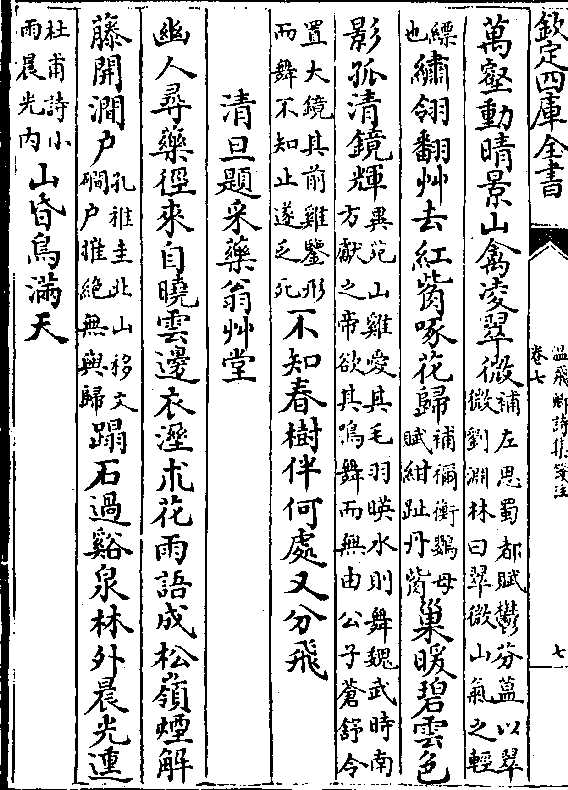 欽定四庫全書
溫飛卿詩集箋注
卷七
七
萬壑動晴景山禽凌翠微補左思蜀都賦鬱葐蒀以翠
微劉淵林曰翠微山氣之輕
縹
也繡翎翻艸去紅觜啄花歸補禰衡鸚母
賦紺趾丹觜巢暖碧雲色
影孤清鏡輝異苑山雞愛其毛羽暎水則舞魏武時南
方獻之帝欲其鳴舞而無由公子蒼舒令
置大鏡其前雞鑒形
而舞不知止遂乏死不知春樹伴何處又分飛
清旦題采藥翁艸堂
幽人尋藥徑來自曉雲邊衣溼朮花雨語成松嶺煙解
藤開澗户孔稚圭北山移文
磵户摧絶無與歸蹋石過谿泉林外晨光連
杜甫詩小
雨晨光内山昏鳥滿天